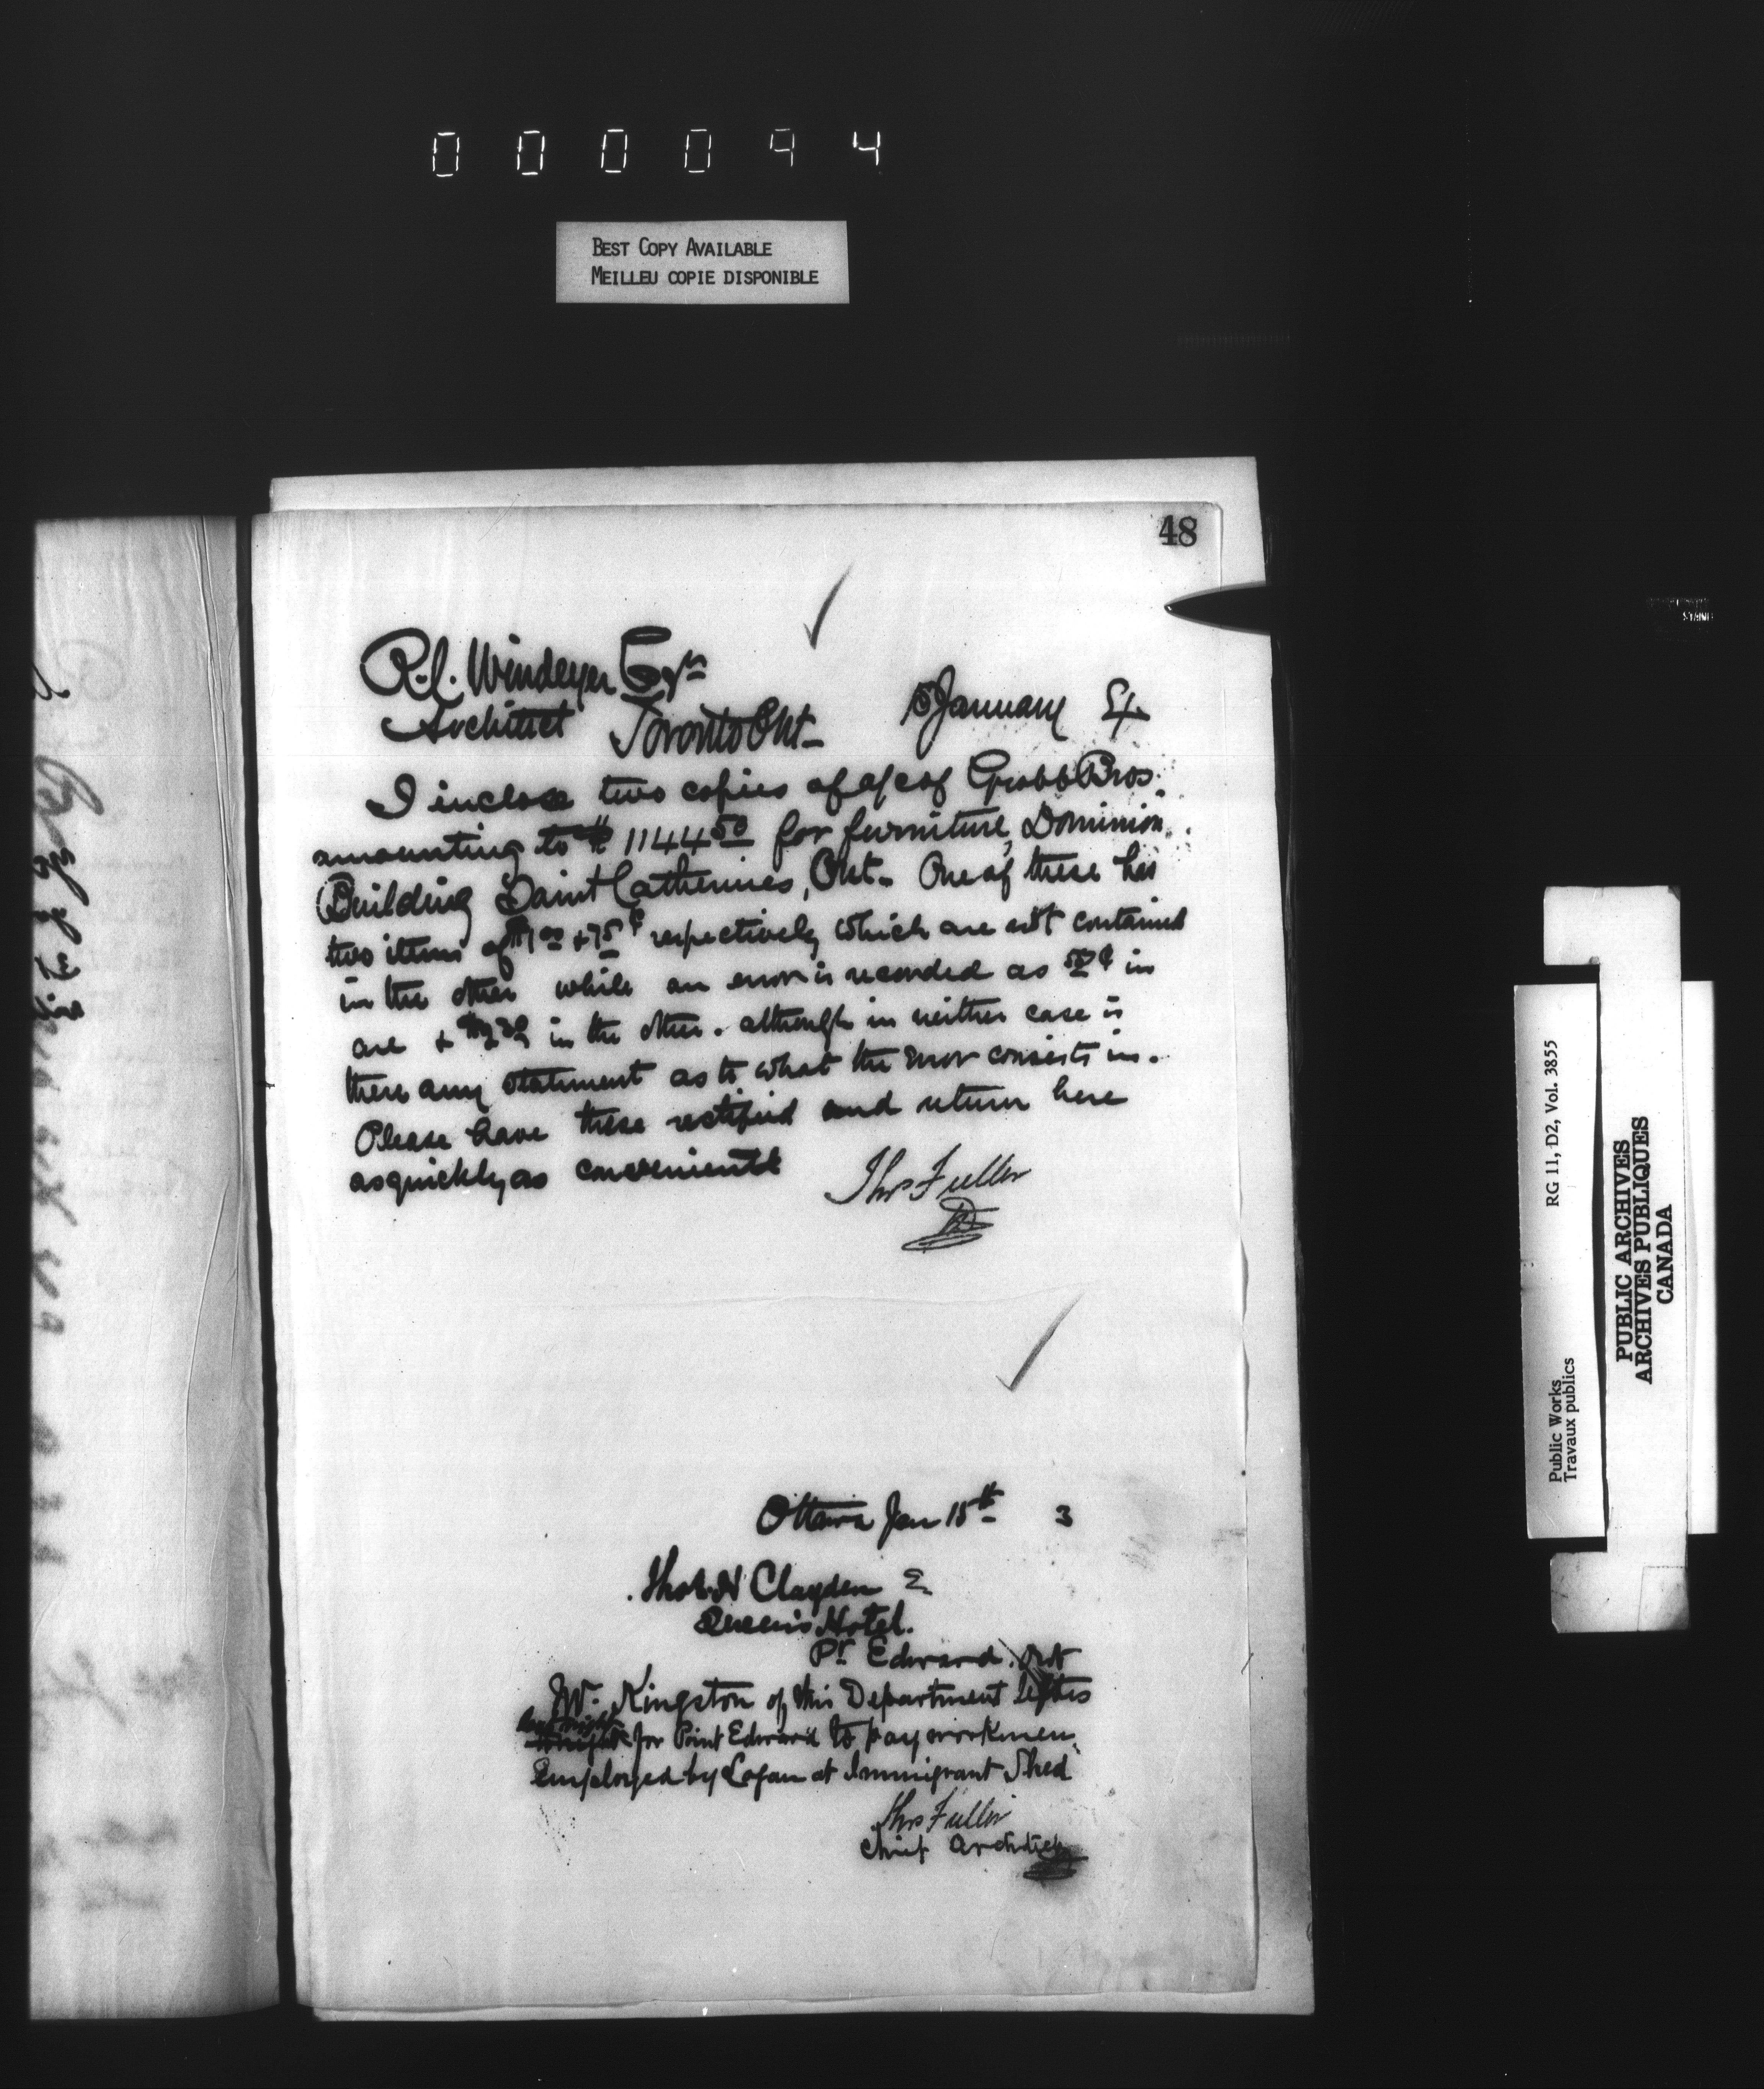 000094
BEST COPY AVAILABLE
MEILLEU COPIE DISPONIBLE
48
R.C. Windeyer Esqr
Architect Toronto Ont-
15 January 84
I inclose two copies of a/c of Grobb Bros.
amounting to $1144 50 for furniture, Dominion
Building Saint Catherines, Ont. One of these has
two items of $1 00 & 75 ¢ respectively which are not contained
in the other while an error is recorded as 50 ¢ in
one & in the other. although in neither case is
there any statement as to what the error consists in.
Please have these rectified and return here
as quickly as convenient
Thos Fuller
Ottawa Jan 15th 3
Thos. W Clayden E
Queen's Hotel.
Pt Edward. Ont
Mr. Kingston of this Department left
last night for Point Edward to pay workmen
Employed by Logan at Immigrant Shed
Thos Fuller
Chief Architect
RG 11, D2, Vol. 3855
Public Works
Travaux publics
PUBLIC ARCHIVES
ARCHIVES PUBLIQUES
CANADA